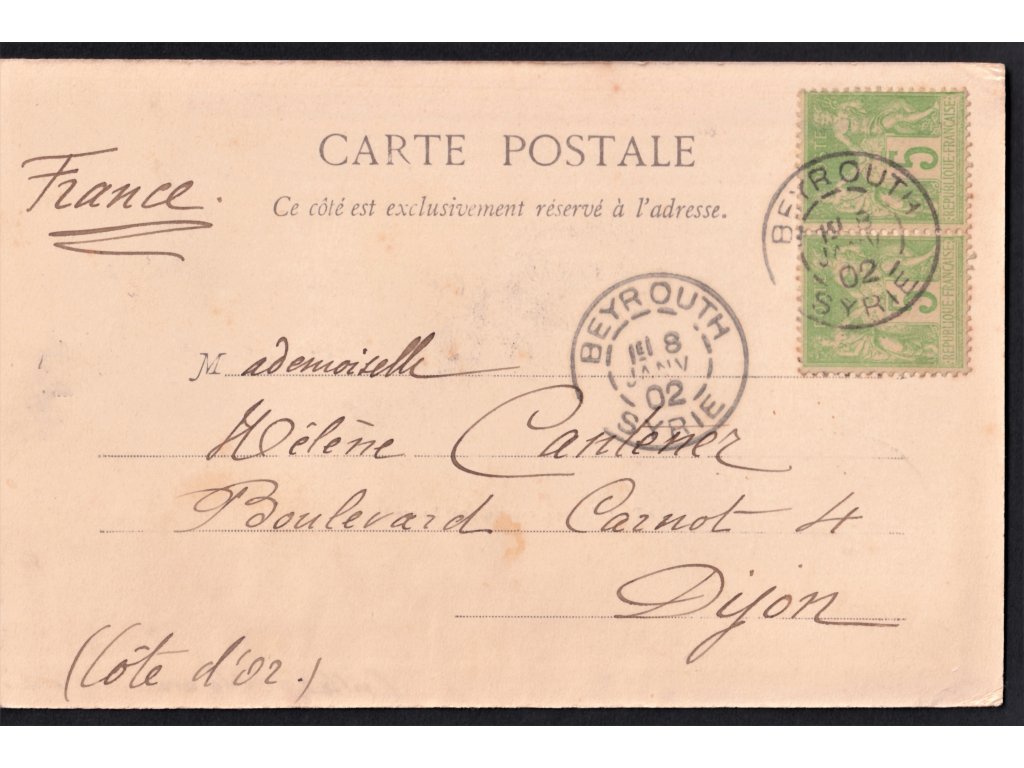 CARTE POSTALE
Ce côté est exclusivement réservé à l'adresse.
France.
5
RÉPUBLIQUE FRANÇAISE
5
RÉPUBLIQUE FRANÇAISE
BEYROUTH
8
JANV
02
SYRIE
BEYROUTH
8
JANV
02
SYRIE
Mademoiselle
Hélène Cantener
Boulevard Carnot 4
Dijon
(Côte d'Or.)